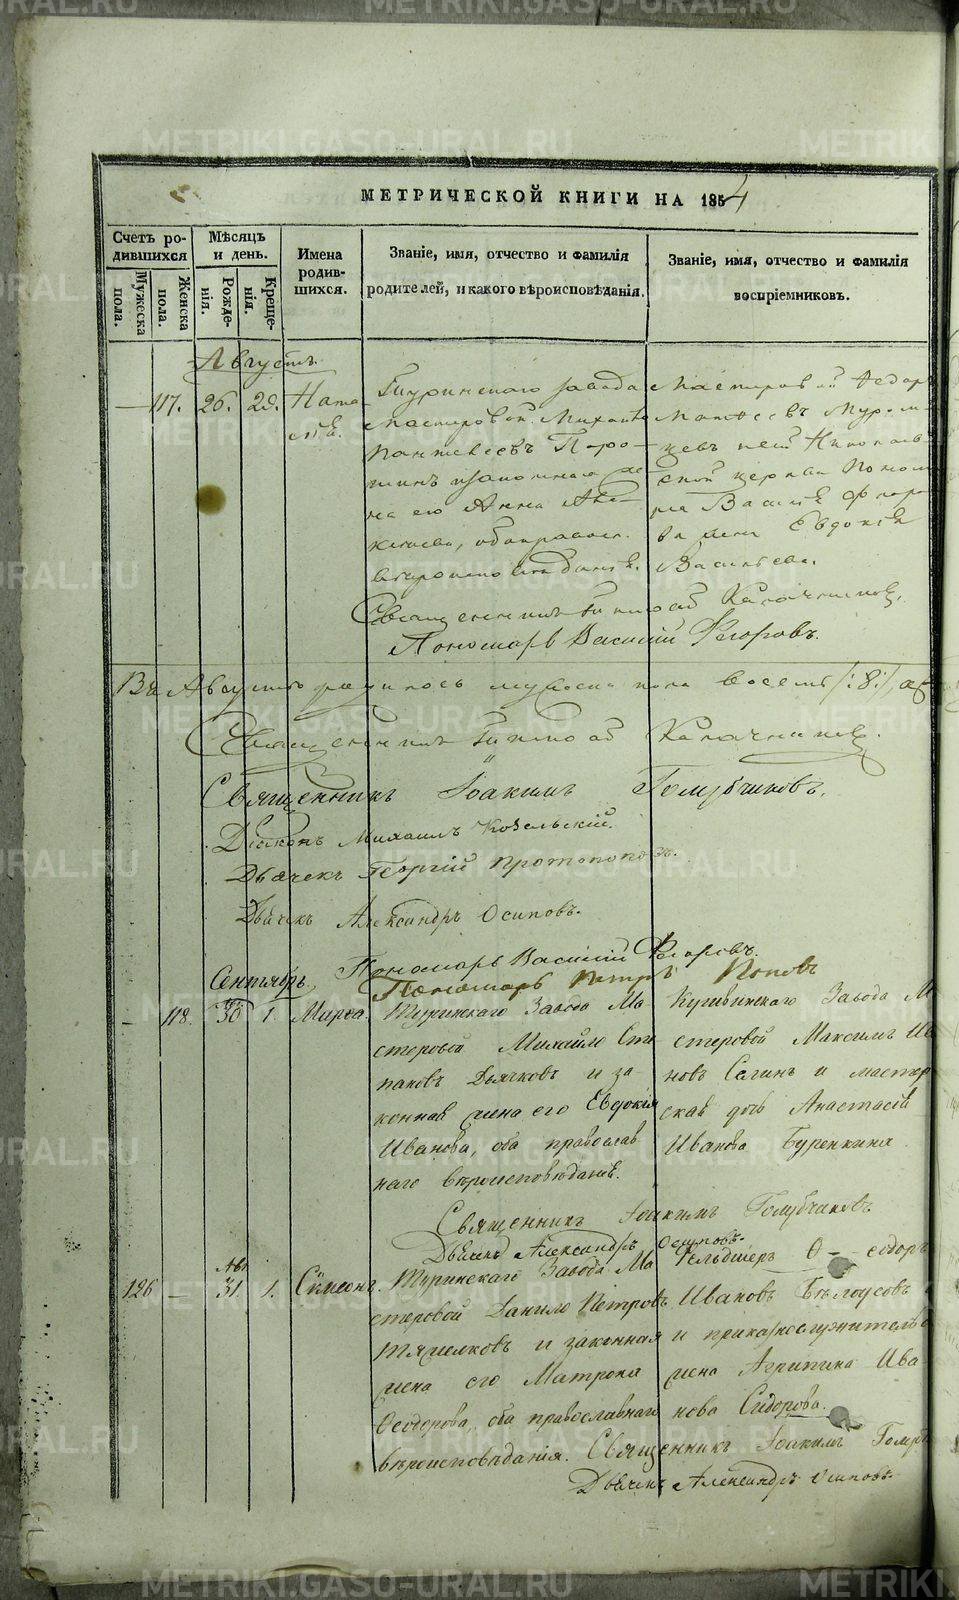 МЕТРИЧЕСКОЙ КНИГИ НА 1854
Счетъ ро-
дившихся
Мѣсяцъ
и день.
Имена
родив-
шихся.
Званіе, имя, отчество и фамилія
родителей, и какого вѣроисповѣданія.
Званіе, имя, отчество и фамилія
воспріемниковъ.
Мужеска
пола.
Женска
пола.
Рожде-
нія.
Креще-
нія.
Августъ.
117. 26. 28. Ната-
лія.
Туринскаго завода
мастеровой Михаилъ
Пантелеевъ
законная же-
на его Анна
оба православ.
вѣроисповѣданія.
Мастеровой Федоръ
Матвеевъ
Николаев-
ской церкви Поном
ря Василія Флоро-
ва жена Евдокія
Васильева.
Священникъ Тимофей Калачниковъ.
Пономарь Василій Флоровъ.
Въ Августѣ родилось мужеска пола восемь /:8:/, а
Священникъ Тимофей Калачниковъ.
Священникъ Іоакимъ Голубчиковъ.
Діаконъ Михаилъ Козельскій.
Дьячекъ Георгій Протопоповъ.
Дьячекъ Александръ Осиповъ.
Пономарь Василій Флоровъ.
Сентябрь,
Пономарь Петръ Поповъ
118. 30 1. Марѳа.
Туринскаго Завода Ма-
стеровой Михайло Сте-
пановъ Дьячковъ и за-
конная жена его Евдокія
Иванова, оба православ
наго вѣроисповѣданія.
Кушвинскаго Завода М
стеровой Максимъ Ива
новъ Селинъ и мастер
ская дочь Анастасія
Иванова Буренкина
Священникъ Іоакимъ Голубчиковъ
Дьячекъ Александръ Осиповъ.
126 — Авг 31. 1. Сѷмеонъ.
Туринскаго Завода Ма
стеровой Данило Петровъ
Тяжелковъ и законная
жена его Матрона
Ѳеодорова, оба православнаго
вѣроисповѣданія.
Фельдшеръ Ѳеодоръ
Ивановъ Бѣлоусовъ
и приказнослужительс
жена Агрипина Ива
нова Сидорова.
Священникъ Іоакимъ Голуб
Дьячекъ Александръ Осиповъ.
METRIKI.GASO-URAL.RU